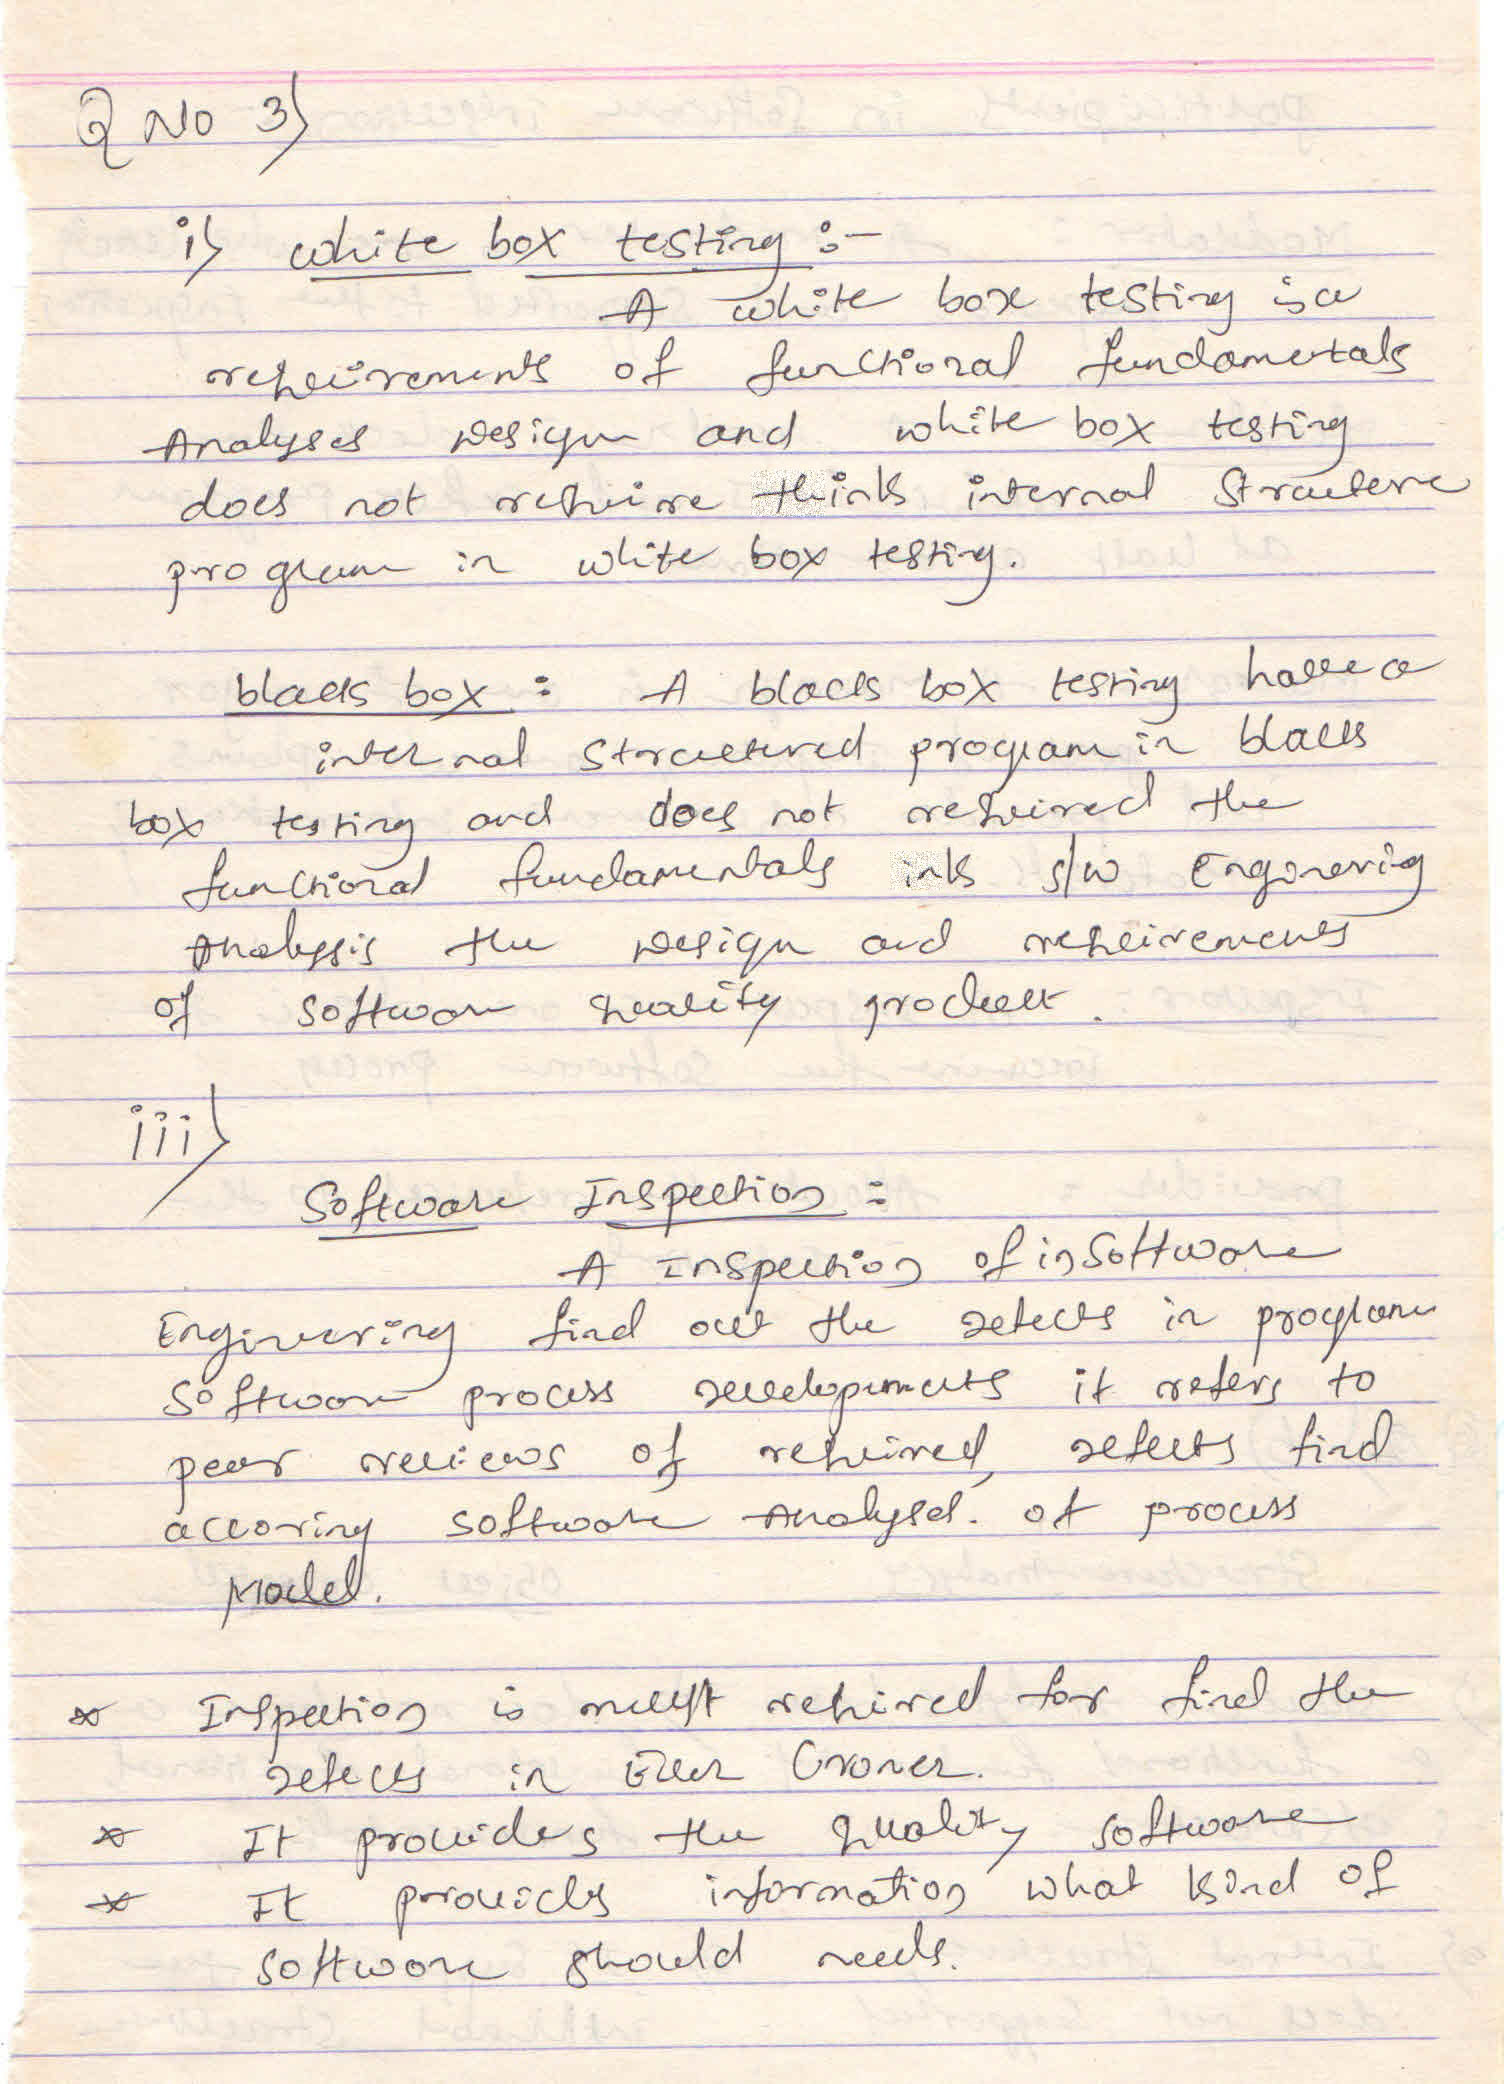 Q No 3)
i) white box testing :-
A white box testing is a
requirements of functional fundamentals
Analyses Design and white box testing
does not require think internal Structure
program in white box testing.
black box : A black box testing have a
internal structured program in black
box testing and does not required the
functional fundamentals ink s/w Enginering
Analysis the Design and requirements
of software quality product.
iii)
Software Inspection :
A Inspection of in Software
Enginering find out the defects in program
software process developments it refers to
peer reviews of required, defects find
accoring software Analysed. of process
Model.
* Inspection is must required for find the
defects in Croner.
* It provides the quality software
* It provides information what kind of
software should needs.